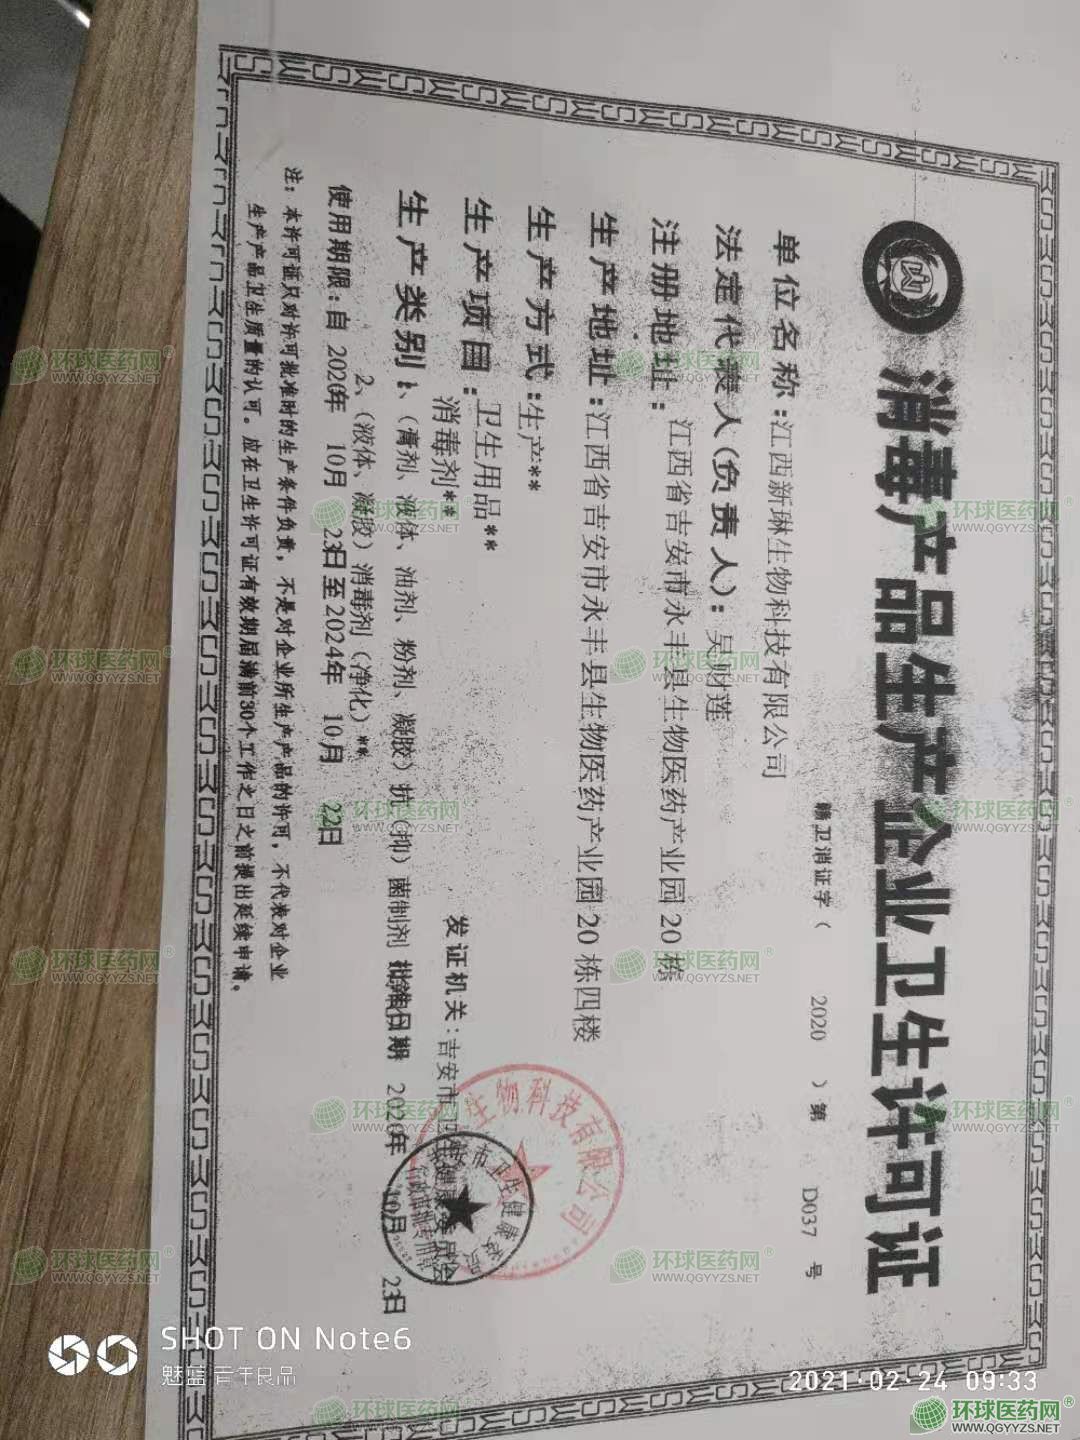 消毒产品生产企业卫生许可证
赣卫消证字( 2020 )第 D037 号
单位名称:江西新琳生物科技有限公司
法定代表人(负责人):吴财莲
注册地址:江西省吉安市永丰县生物医药产业园20栋
生产地址:江西省吉安市永丰县生物医药产业园20栋四楼
生产方式:生产**
生产项目:卫生用品**
消毒剂**
生产类别:1、(膏剂、液体、油剂、粉剂、凝胶)抗(抑)菌制剂
2、(液体、凝胶)消毒剂(净化)**
使用期限:自 2020年 10月 23日至2024年 10月 22日
发证机关:吉安市卫生健康委员会
批准日期 2020年 10月 23日
注:本许可证只对许可批准时的生产条件负责,不是对企业所生产产品的许可,不代表对企业
生产产品卫生质量的认可。应在卫生许可证有效期届满前30个工作之日之前提出延续申请。
生物科技有限公司
市卫生健康委员
行政审批专用章
SHOT ON Note6
魅蓝 青年良品
2021-02-24 09:33
环球医药网®
WWW.QGYYZS.NET